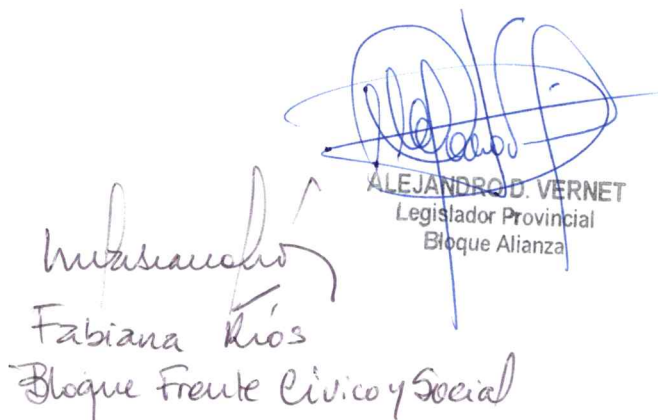 ALEJANDRO D. VERNET
Legislador Provincial
Bloque Alianza
Fabiana Ríos
Bloque Frente Cívico y Social